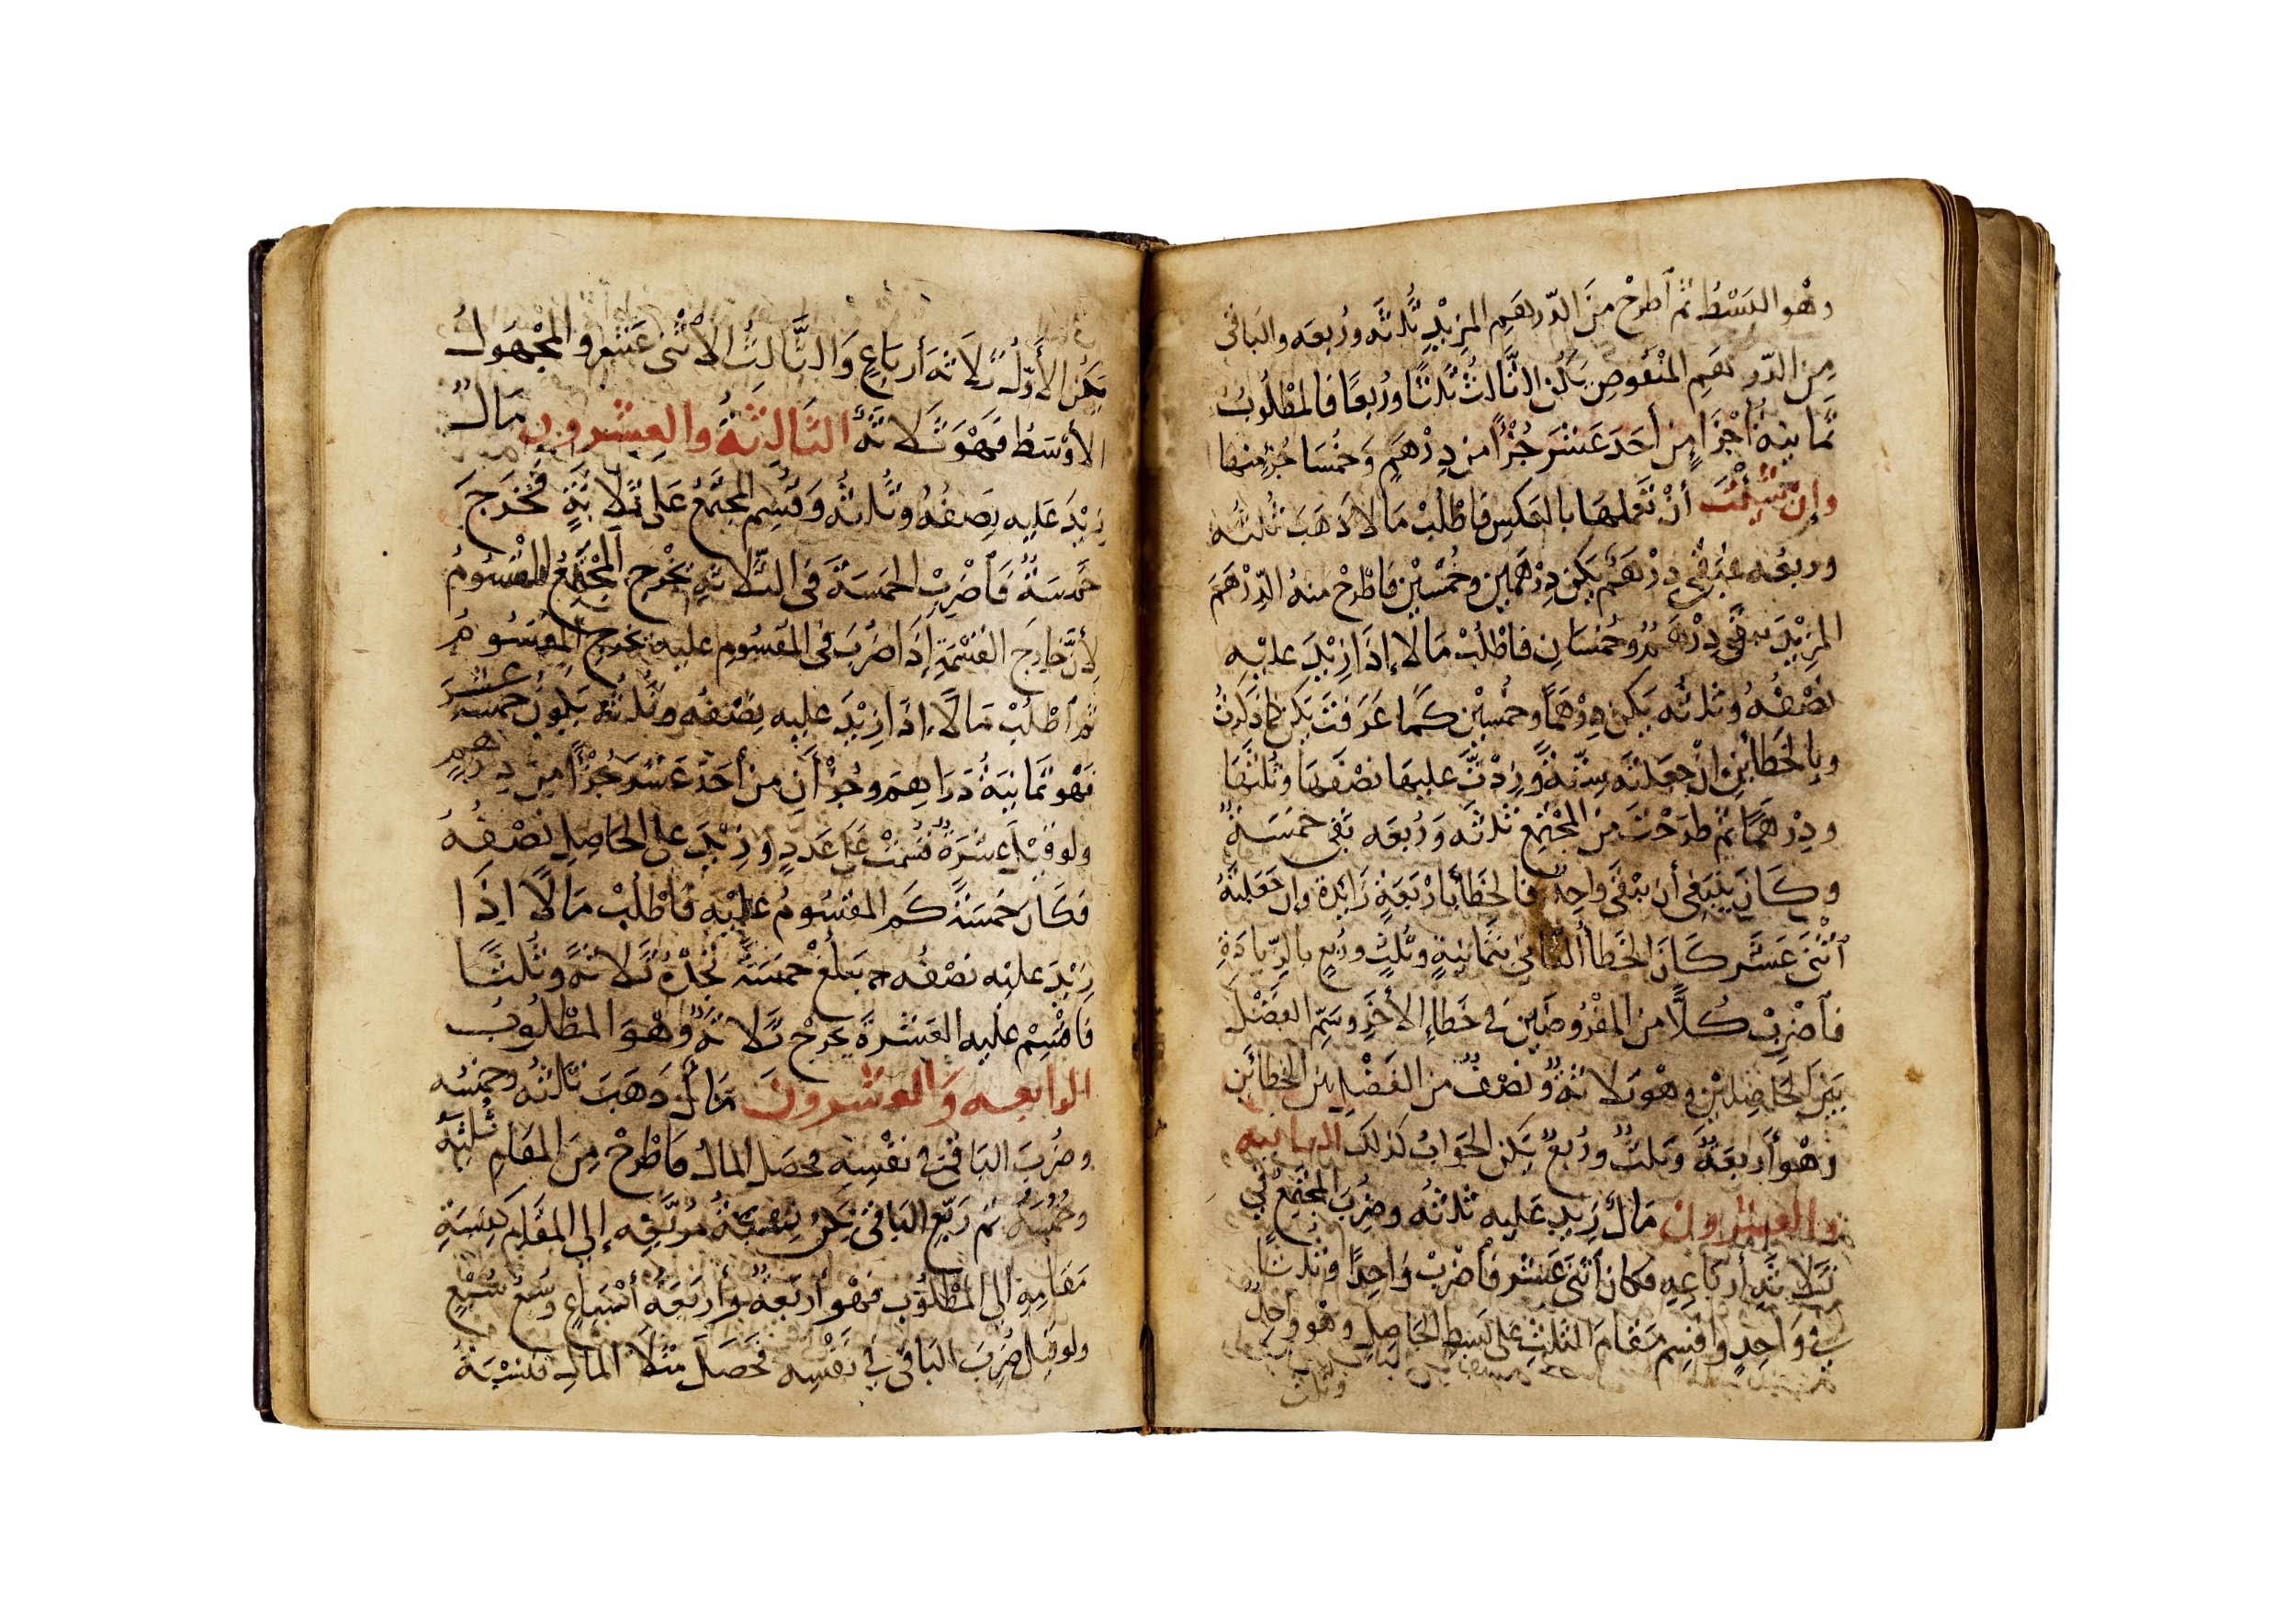 وهو البسط ثم اطرح من الدرهم المزيد ثلثه وربعه والباقي
من الدرهم المنقوص يكن الثالث ثلثا وربعا فالمطلوب
ثمانية أجزاء من أحد عشر جزءا من درهم وخمسا جزء منها
وإن شئت أن تعملها بالعكس فاطلب مالا ذهب ثلثه
وربعه فبقي درهم يكن درهمين وخمسين فاطرح منه الدرهم
المزيد يبقى درهم وخمسان فاطلب مالا إذا زيد عليه
نصفه وثلثه يكن درهما وخمسين كما عرفت يكن كما ذكرت
وبالخطأين إن جعلته ستة وزدت عليها نصفها وثلثها
ودرهما ثم طرحت من المجتمع ثلثه وربعه بقي خمسة
وكان ينبغي أن يبقى واحد فالخطأ بأربعة زائدة وإن جعلته
اثنى عشر كان الخطأ الثاني بثمانية وثلث وربع بالزيادة
فاضرب كلا من المفروضين في خطاء الأخر وسم الفضل
بين الحاصلين وهو ثلاثة ونصف من الفضل بين الخطأين
وهو أربعة وثلث وربع يكن الجواب كذلك الثانية
والعشرون مال زيد عليه ثلثه وضرب المجتمع في
ثلاثة أرباعه فكان اثنى عشر فاضرب واحدا وثلثا
في واحد واقسم مقام الثلث على بسط الحاصل وهو واحد
وثلث
يكن الأول ثلاثة أرباع والثالث الاثنى عشر والمجهول
الأوسط فهو ثلاثة الثالثة والعشرون مال
زيد عليه نصفه وثلثه وقسم المجتمع على ثلاثة فخرج
خمسة فاضرب الخمسة في الثلاثة يخرج المجتمع المقسوم
لأن خارج القسمة إذا ضرب في المقسوم عليه يخرج المقسوم
ثم اطلب مالا إذا زيد عليه نصفه وثلثه يكون خمسة عشر
فهو ثمانية دراهم وجزءان من أحد عشر جزءا من درهم
ولو قيل عشرة قسمت على عدد وزيد على الحاصل نصفه
فكان خمسة كم المقسوم عليه فاطلب مالا إذا
زيد عليه نصفه يبلغ خمسة تجده ثلاثة وثلثا
فاقسم عليه العشرة يخرج ثلاثة وهو المطلوب
الرابعة والعشرون مال ذهب ثلثه وخمسه
وضرب الباقي في نفسه فحصل المال فاطرح من المقام ثلثه
وخمسه ثم ربع الباقي تكن نسبة مربعه إلى المقام كنسبة
مقامه إلى المطلوب فهو أربعة وأربعة أسباع وسبع سبع
ولو قيل ضرب الباقي في نفسه فحصل مثلا المال فنسبة